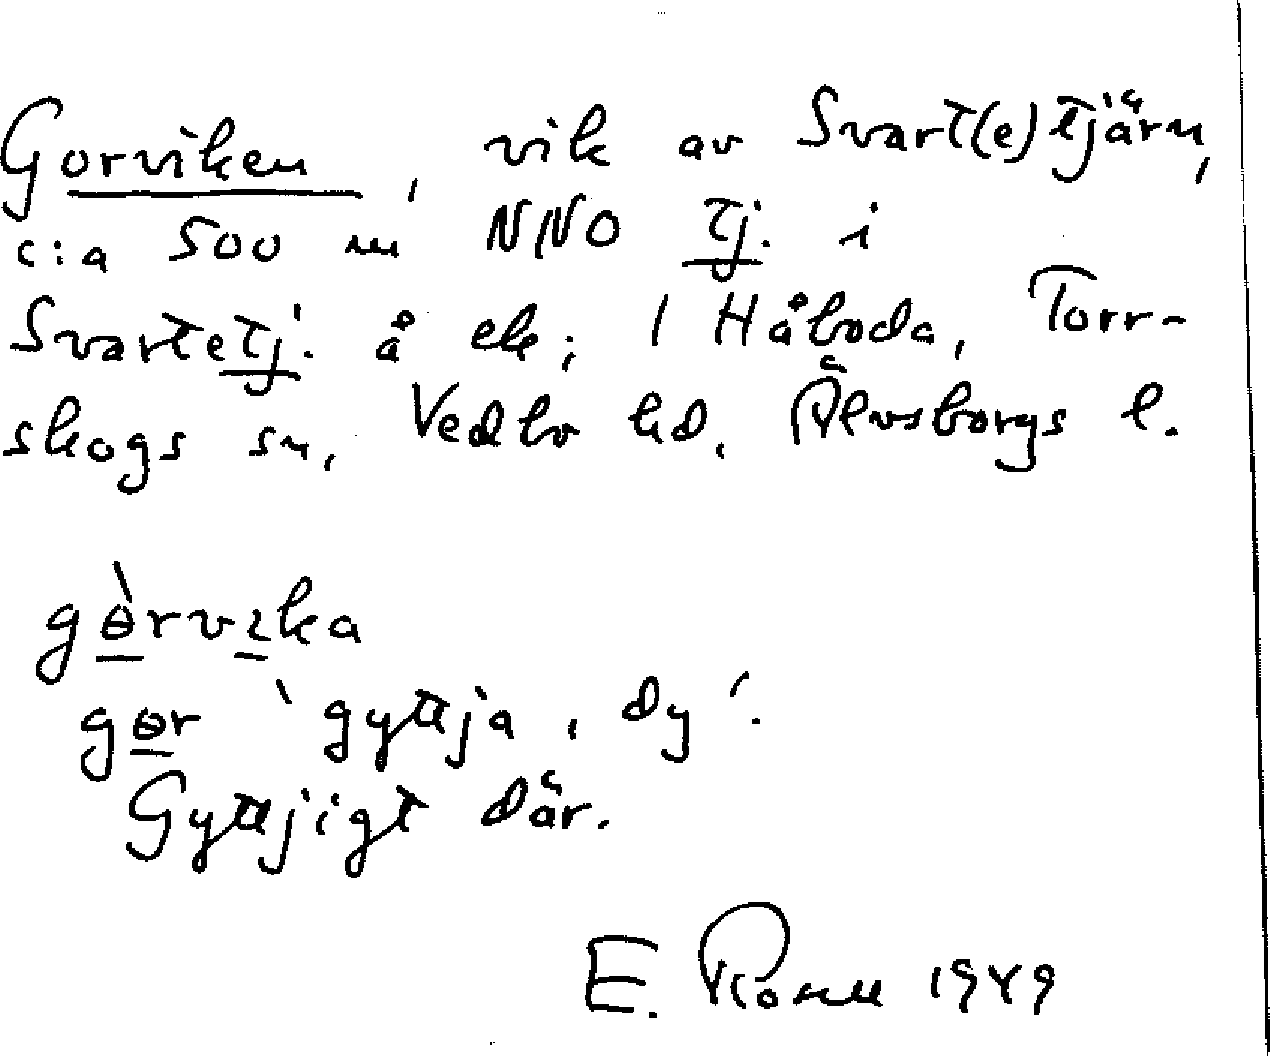 Gorviken, vik av Svart(e)tjärn,
c:a 500 m NNO tj. i
Svartetj. å ek; i Håboda, Torr-
skogs sn, Vedbo hd, Älvsborgs l.
gɵ̀rvıka
gɵr `gyttja, dy´.
Gyttjigt där.
E. 1949